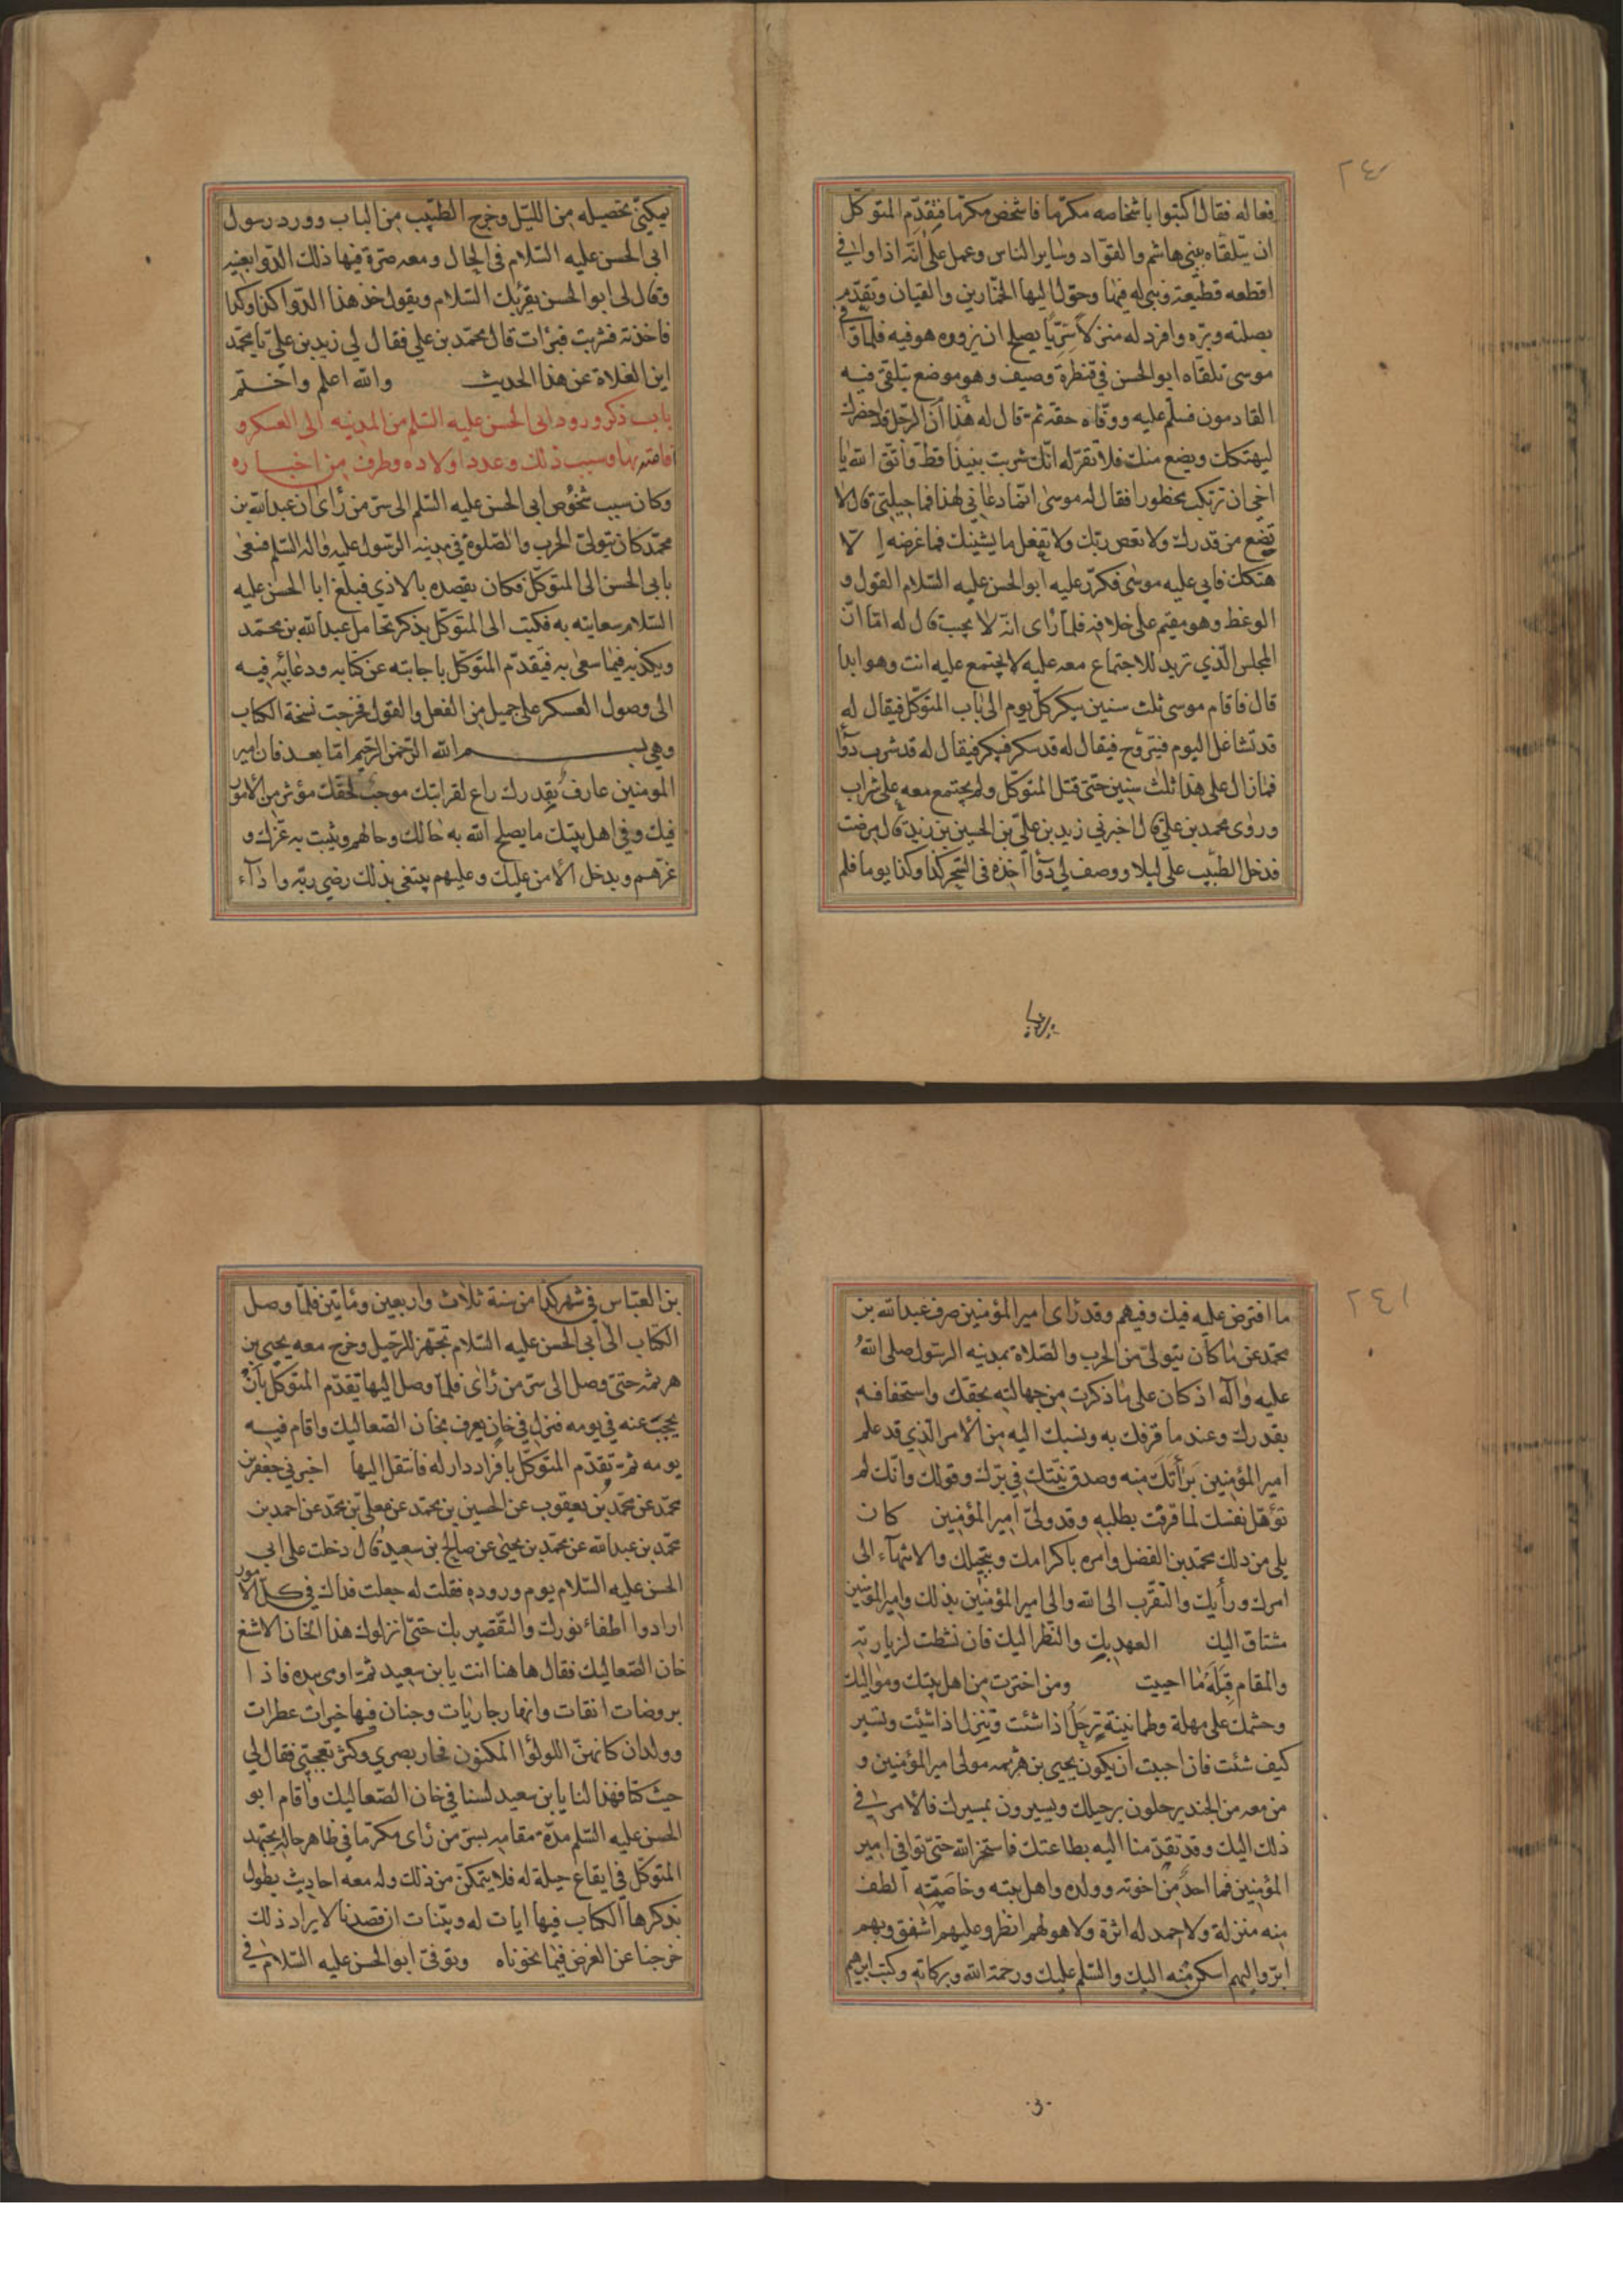 ٢٤٠
فعاله فقال اكتبوا باشخاصه مكرما فاشخص مكرما فتقدم المتوكل
ان يتلقاه بنى هاشم والقواد وساير الناس وعمل على انه اذا وافى
اقطعه قطيعة وبنى له فيها وحول اليها الخمارين والقيان وتقدم
بصلته وبره وافرد له منزلا سريا يصلح ان يزوره هو فيه فلما وافى
موسى تلقاه ابو الحسن في قنطرة وصيف وهو موضع يتلقى فيه
القادمون فسلم عليه ووفاه حقه ثم قال له هذا ان الرجل قد احضرك
ليهتكك ويضع منك فلا تقر له انك شربت نبيذا قط واتق الله يا
اخى ان ترتكب محظورا فقال له موسى انما دعانى لهذا فما حيلتى قال لا
تضع من قدرك ولا تعص ربك ولا تفعل ما يشينك فما غرضه الا
هتكك فابى عليه موسى فكرر عليه ابو الحسن عليه السلام القول و
الوعظ وهو مقيم على خلافه فلما راى انه لا يجيب قال له اما ان
المجلس الذي تريد الاجتماع معه عليه لا يجتمع عليه انت وهو ابدا
قال فاقام موسى ثلث سنين يبكر كل يوم الى باب المتوكل فيقال له
قد تشاغل اليوم فيتروح فيقال له قد سكر فيبكر فيقال له قد شرب دوا
فما زال على هذا ثلث سنين حتى قتل المتوكل ولم يجتمع معه على شراب
وروى محمد بن علي قال اخبرني زيد بن علي بن الحسين بن زيد قال مرضت
فدخل الطبيب على ليلا ووصف لي دوآ آخذه في السحر كذا وكذا يوما فلم
يمكني
يمكنى تحصيله من الليل وخرج الطبيب من الباب وورد رسول
ابى الحسن عليه السلام فى الحال ومعه صرة فيها ذلك الدوا بعينه
وقال لى ابو الحسن يقرئك السلام ويقول خذ هذا الدوا كذا وكذا
فاخذته فشربت فبرأت قال محمد بن علي فقال لي زيد بن علي يا محمد
اين الغلاة عن هذا الحديث والله اعلم واحكم
باب ذكر ورود ابى الحسن عليه السلم من المدينه الى العسكر و
اقامته بها وسبب ذلك وعدد اولاده وطرف من اخباره
وكان سبب شخوص ابى الحسن عليه السلم الى سر من راى ان عبد الله بن
محمد كان يتولى الحرب والصلوة في مدينه الرسول عليه واله السلم فسعى
بابى الحسن الى المتوكل وكان يقصده بالاذي فبلغ ابا الحسن عليه
السلام سعايته به فكتب الى المتوكل يذكر تحامل عبد الله بن محمد
ويكذبه فيما سعى به فيقدم المتوكل باجابته عن كتابه ودعائه فيه
الى وصول العسكر على جميل من الفعل والقول فخرجت نسخة الكتاب
وهي بسم الله الرحمن الرحيم اما بعد فان امير
المومنين عارف بقدرك راع لقرابتك موجب لحقك مؤثر من الامور
فيك وفي اهل بيتك ما يصلح الله به حالك وحالهم ويثبت به عزك و
عزهم ويدخل الامن عليك وعليهم يبتغى بذلك رضى ربه واداء
٢٤١
ما افترض عليه فيك وفيهم وقد راى امير المؤمنين صرف عبد الله بن
محمد عن ما كان يتولى من الحرب والصلاة بمدينه الرسول صلى الله
عليه وآله اذ كان على ما ذكرت من جهالته بحقك واستخفافه
بقدرك وعند ما قرفك به ونسبك اليه من الامر الذي قد علم
امير المؤمنين برأتك منه وصدق نيتك في برك وقولك وانك لم
تؤهل نفسك لما قرفت بطلبه وقد ولى امير المؤمنين كان
يلى من ذلك محمد بن الفضل وامره باكرامك وتبجيلك والانتهآء الى
امرك ورأيك والتقرب الى الله والى امير المؤمنين بذلك وامير المؤمنين
مشتاق اليك العهد بك والنظر اليك فان نشطت لزيارته
والمقام قبله ما احببت ومن اخترت من اهل بيتك ومواليك
وحشمك على مهلة وطمانينة ترحل اذا شئت وتنزل اذا شئت وتسير
كيف شئت فان احببت ان يكون يحيى بن هرثمه مولى امير المؤمنين و
من معه من الجند يرحلون برحيلك ويسيرون بمسيرك فالامر فى
ذلك اليك وقد تقدمنا اليه بطاعتك فاستخر الله حتى توافى امير
المؤمنين فما احد من اخوته وولده واهل بيته وخاصته الطف
منه منزلة ولا احمد له اثرة ولا هو لهم انظر وعليهم اشفق وبهم
ابر واليهم اسكن منه اليك والسلم عليك ورحمة الله وبركاته وكتب ابرهيم
بن
بن العباس في شهر كذا من سنة ثلاث واربعين ومائتين فلما وصل
الكتاب الى ابى الحسن عليه السلام تجهز للرحيل وخرج معه يحيى بن
هرثمه حتى وصل الى سر من راى فلما وصل اليها تقدم المتوكل بان
يحجب عنه في يومه فنزل في خان يعرف بخان الصعاليك واقام فيه
يومه ثم تقدم المتوكل بافراد دار له فانتقل اليها اخبرني جعفر بن
محمد عن محمد بن يعقوب عن الحسين بن محمد عن معلى بن محمد عن احمد بن
محمد بن عبد الله عن محمد بن يحيى عن صالح بن سعيد قال دخلت على ابى
الحسن عليه السلام يوم وروده فقلت له جعلت فداك في كل الامور
ارادوا اطفاء نورك والتقصير بك حتى انزلوك هذا الخان الاشنع
خان الصعاليك فقال هاهنا انت يا بن سعيد ثم اومى بيده فاذا
بروضات انقات وانهار جاريات وجنان فيها خيرات عطرات
وولدان كانهن اللولؤا المكنون فحار بصري وكثر تعجبى فقال لي
حيث كنا فهذا لنا يا بن سعيد لسنا في خان الصعاليك واقام ابو
الحسن عليه السلم مدة مقامه بسر من راى مكرما في ظاهر حاله يجتهد
المتوكل في ايقاع حيلة له فلا يتمكن من ذلك وله معه احاديث يطول
بذكرها الكتاب فيها ايات له وبينات ان قصدنا لايراد ذلك
خرجنا عن الغرض فيما نحوناه وتوفى ابو الحسن عليه السلام في